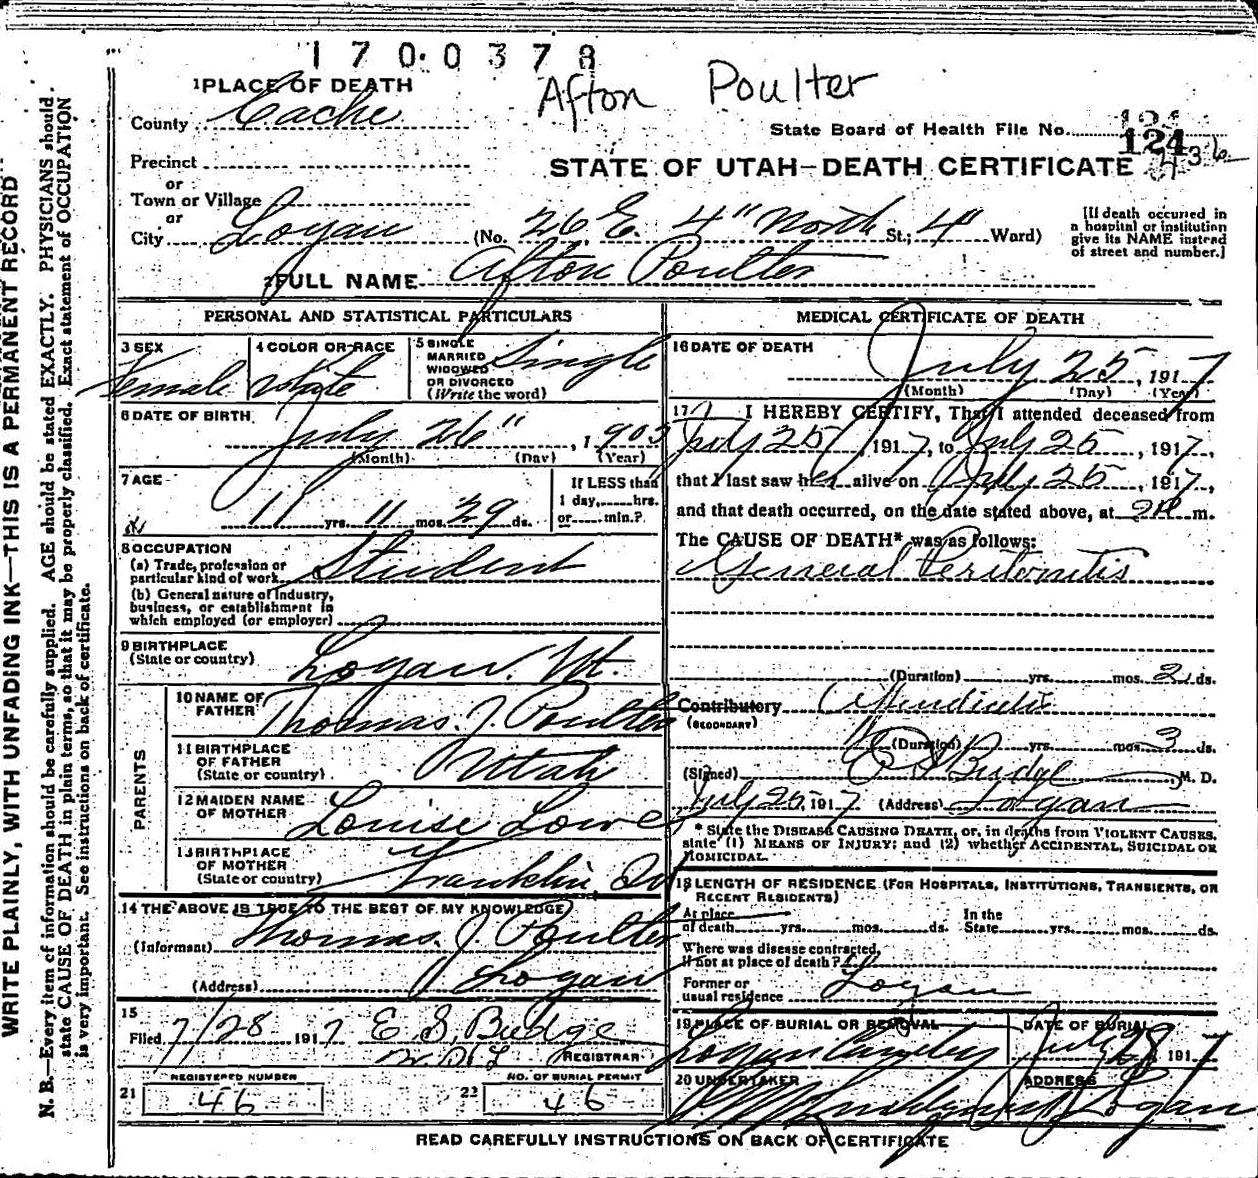 1700378
Afton Poulter
1 PLACE OF DEATH
County Cache
State Board of Health File No. 124
436
Precinct
STATE OF UTAH—DEATH CERTIFICATE
or
Town or Village
or
City Logan (No. 26 E. 4" North St.; 4" Ward)
[If death occurred in
a hospital or institution
give its NAME instead
of street and number.]
2 FULL NAME Afton Poulter
PERSONAL AND STATISTICAL PARTICULARS
3 SEX
Female
4 COLOR OR RACE
White
5 SINGLE
MARRIED
WIDOWED
OR DIVORCED
(Write the word)
Single
6 DATE OF BIRTH
July 26", 1905
(Month) (Day) (Year)
7 AGE
11 yrs. 11 mos. 29 ds.
If LESS than
1 day, hrs.
or min.?
8 OCCUPATION
(a) Trade, profession or
particular kind of work Student
(b) General nature of industry,
business, or establishment in
which employed (or employer)
9 BIRTHPLACE
(State or country) Logan. Ut.
PARENTS
10 NAME OF
FATHER Thomas. J. Poulter
11 BIRTHPLACE
OF FATHER
(State or country) Utah
12 MAIDEN NAME
OF MOTHER Louise Lowe
13 BIRTHPLACE
OF MOTHER
(State or country) Franklin, Id
14 THE ABOVE IS TRUE TO THE BEST OF MY KNOWLEDGE
(Informant) Thomas. J. Poulter
(Address) Logan
15
Filed 7/28 1917 E. S. Budge
REGISTRAR
21 REGISTERED NUMBER
46
22 NO. OF BURIAL PERMIT
46
MEDICAL CERTIFICATE OF DEATH
16 DATE OF DEATH
July 25, 1917
(Month) (Day) (Year)
17 I HEREBY CERTIFY, That I attended deceased from
July 25, 1917, to July 25, 1917,
that I last saw her alive on July 25, 1917,
and that death occurred, on the date stated above, at m.
The CAUSE OF DEATH* was as follows:
General Peritonitis
(Duration) yrs. mos. 2 ds.
Contributory
(SECONDARY)
(Duration) yrs. mos. 3 ds.
(Signed) E S Budge, M. D.
July 25, 1917 (Address) Logan
* State the DISEASE CAUSING DEATH, or, in deaths from VIOLENT CAUSES,
state (1) MEANS OF INJURY; and (2) whether ACCIDENTAL, SUICIDAL OR
HOMICIDAL.
18 LENGTH OF RESIDENCE (FOR HOSPITALS, INSTITUTIONS, TRANSIENTS, OR
RECENT RESIDENTS)
At place
of death yrs. mos. ds.
In the
State yrs. mos. ds.
Where was disease contracted,
if not at place of death?
Former or
usual residence Logan
19 PLACE OF BURIAL OR REMOVAL
Logan
DATE OF BURIAL
July 28 1917
20 UNDERTAKER
ADDRESS
Logan
READ CAREFULLY INSTRUCTIONS ON BACK OF CERTIFICATE
WRITE PLAINLY, WITH UNFADING INK—THIS IS A PERMANENT RECORD
N. B.—Every item of information should be carefully supplied. AGE should be stated EXACTLY. PHYSICIANS should
state CAUSE OF DEATH in plain terms, so that it may be properly classified. Exact statement of OCCUPATION
is very important. See instructions on back of certificate.